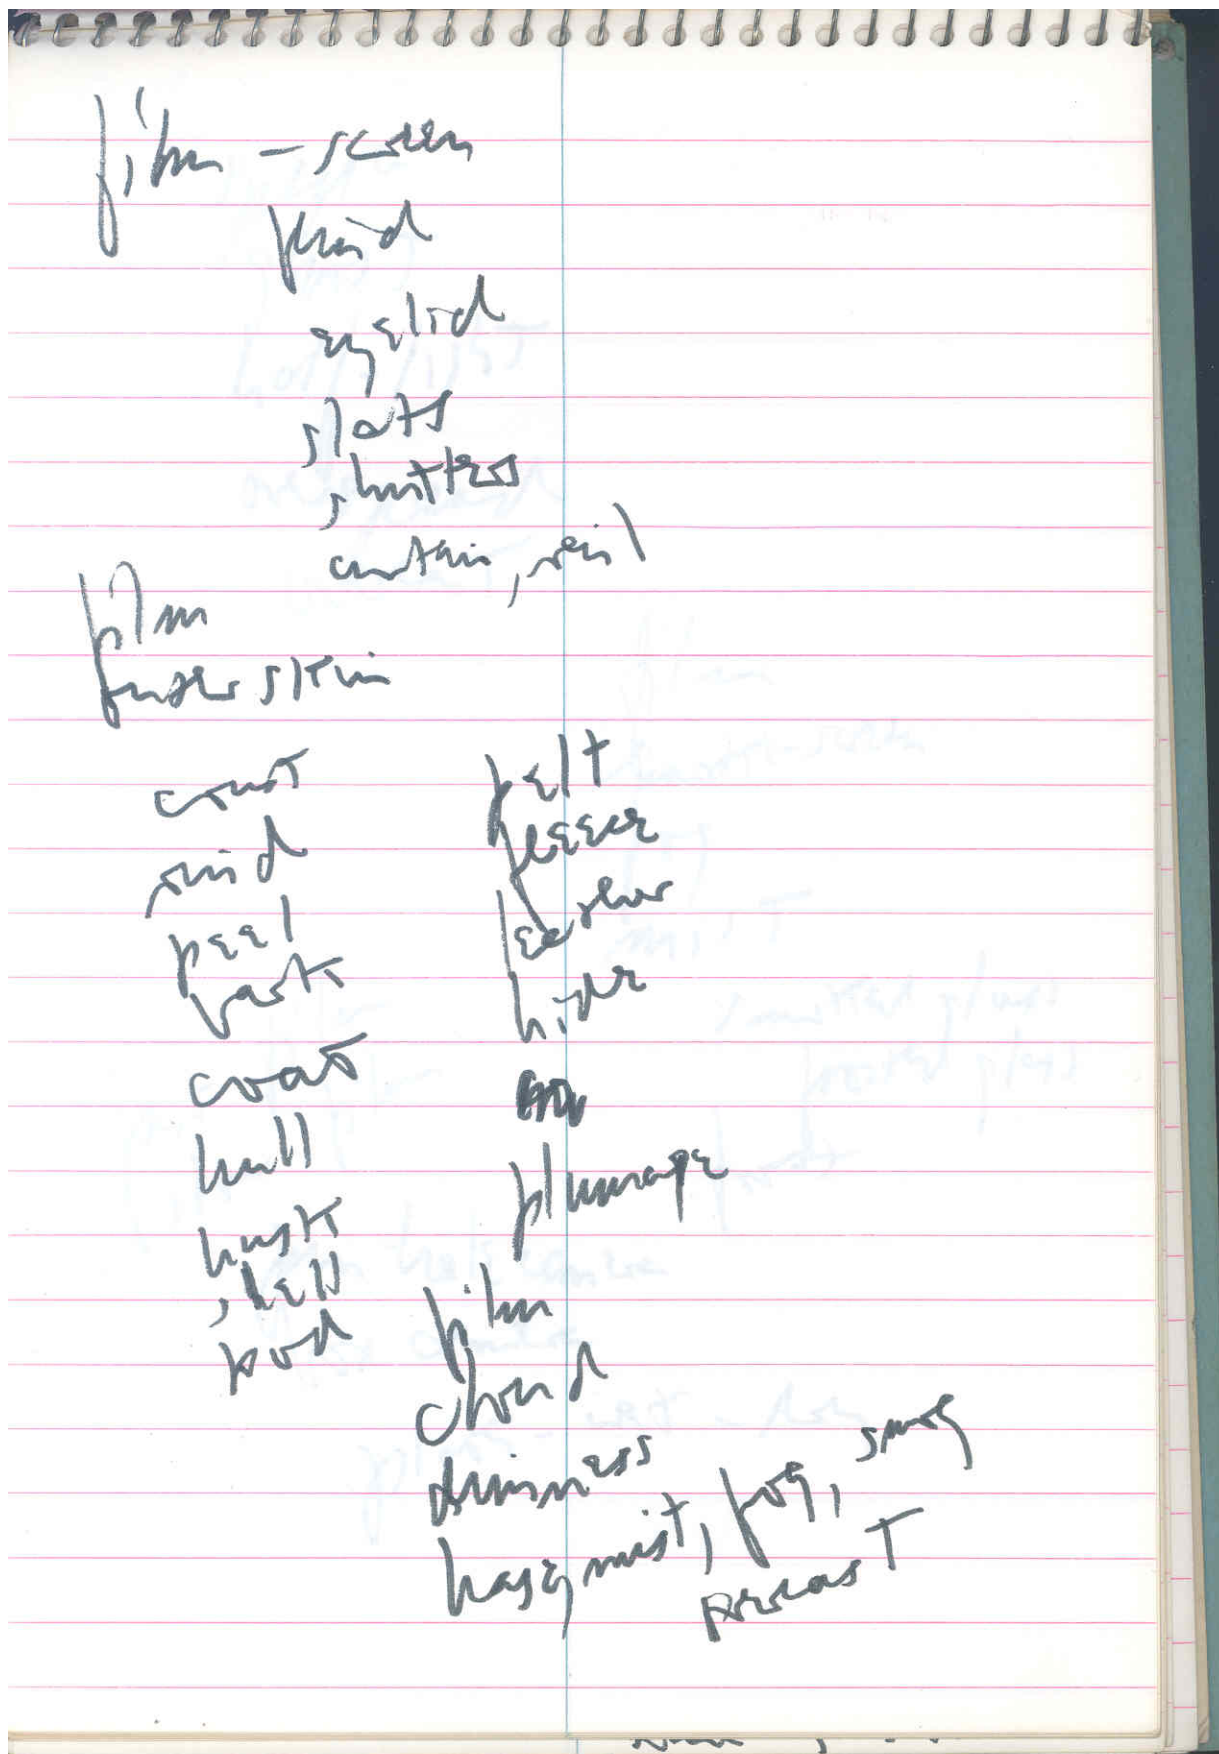 film – screen
eyelid
slats
shutters
curtain, veil
film
skin
crust
rind
peel
bark
coat
hull
husk
shell
pod
pelt
fleece
leather
hide
plumage
film
cloud
dimness
haze, mist, fog, smog
overcast